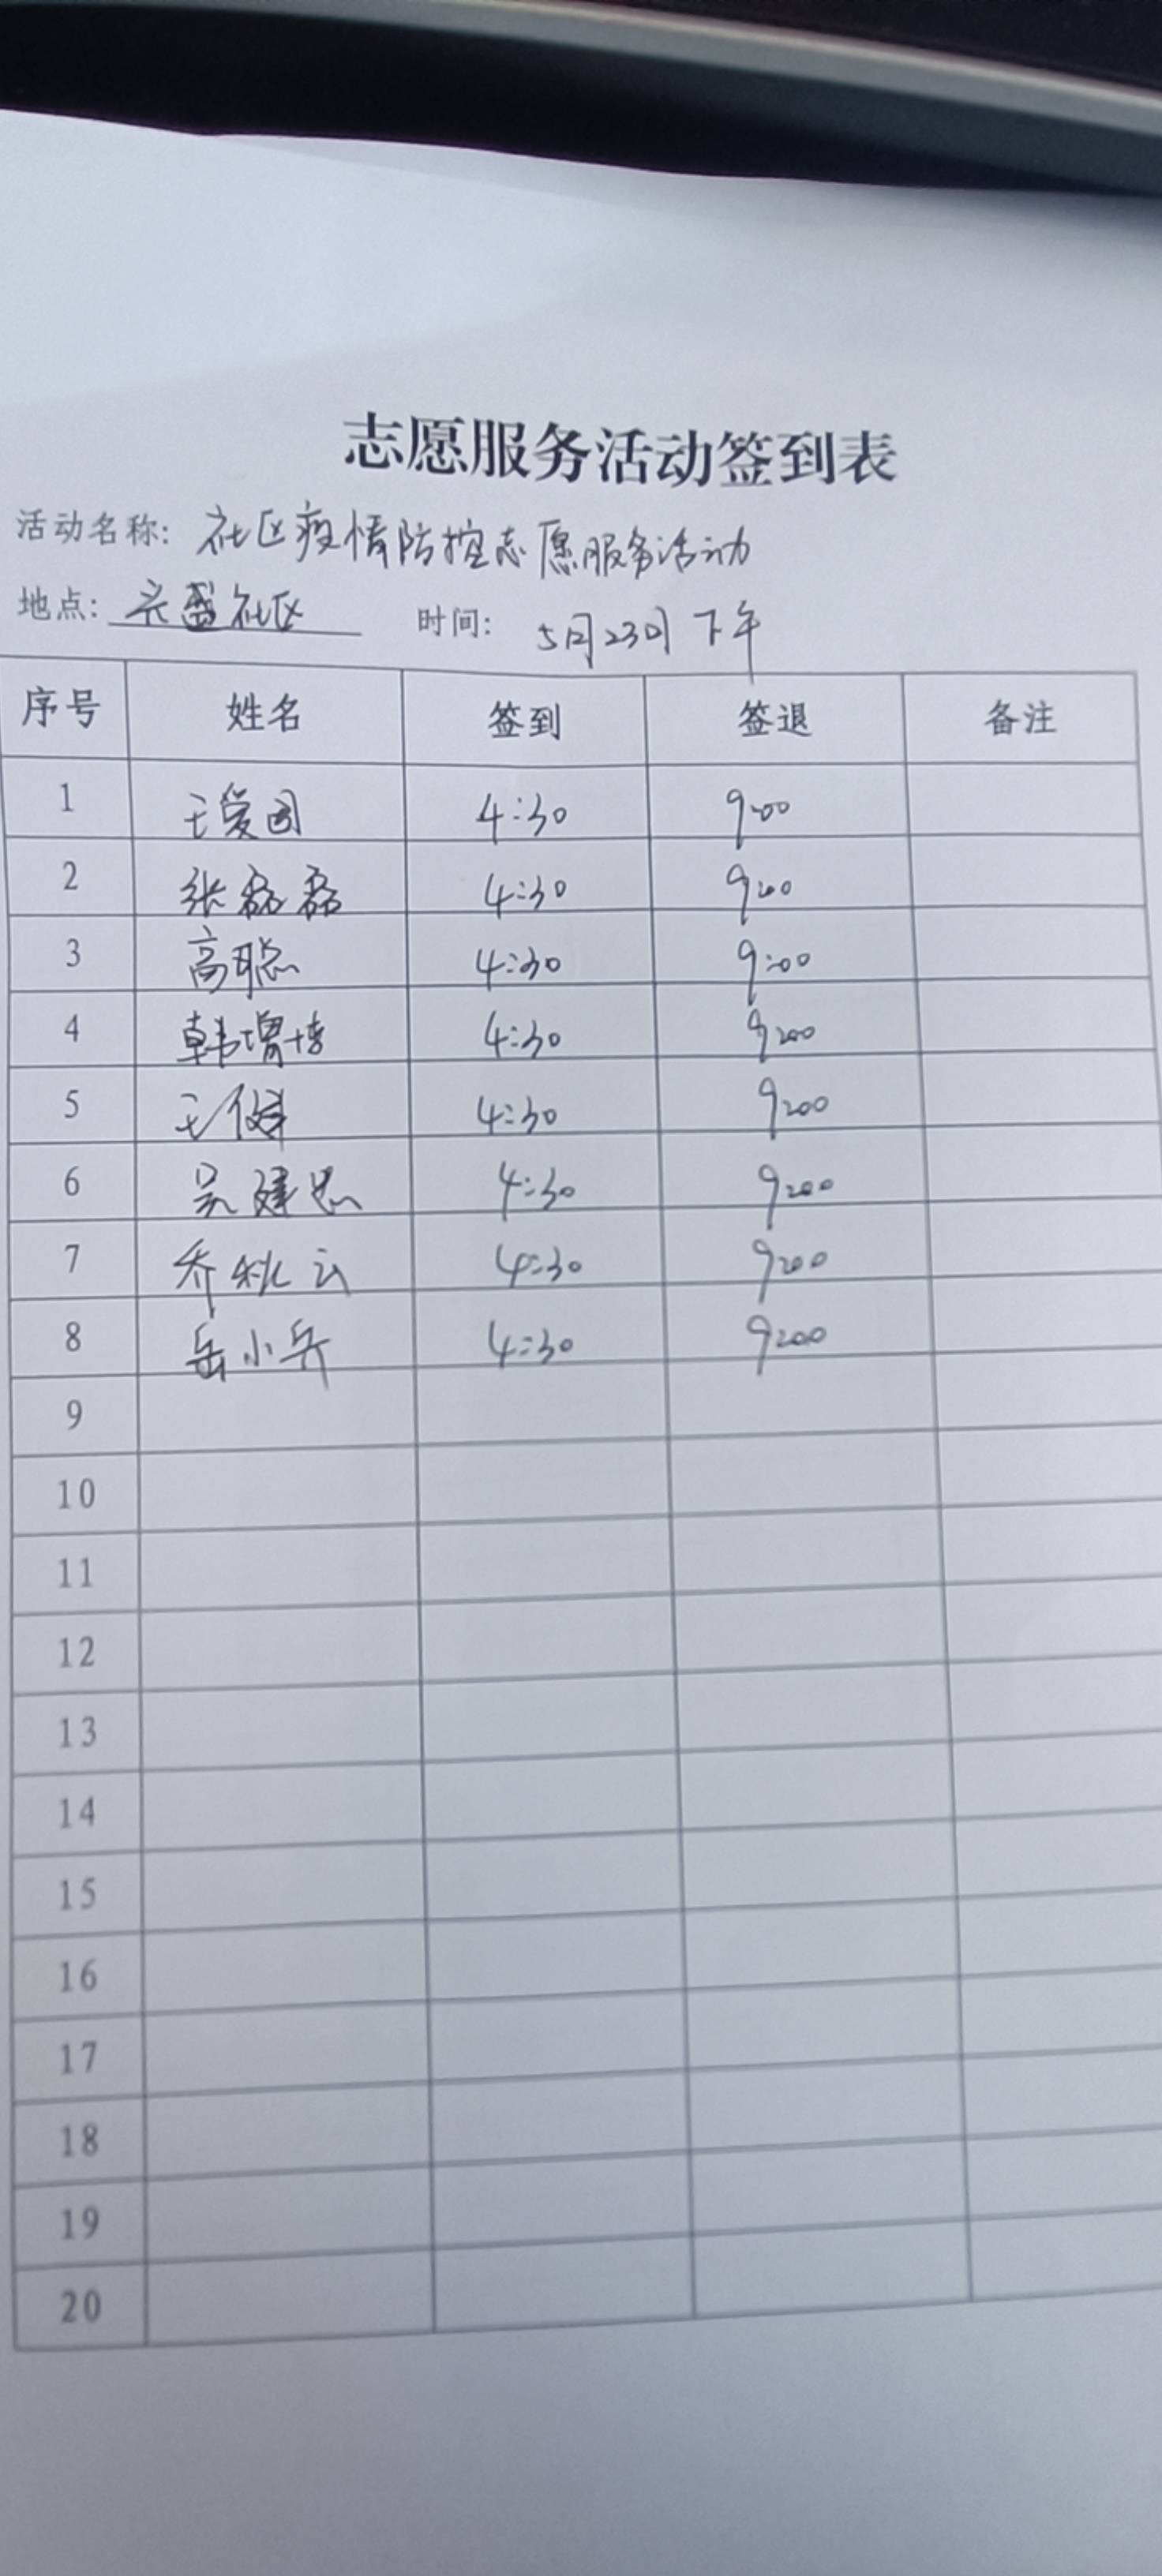 志愿服务活动签到表
活动名称: 社区疫情防控志愿服务活动
地点: 兴盛社区 时间: 5月23日下午
序号 姓名 签到 签退 备注
1 王爱国 4:30 9:00
2 张磊磊 4:30 9:00
3 高聪 4:30 9:00
4 韩增培 4:30 9:00
5 王健 4:30 9:00
6 吴建忠 4:30 9:00
7 乔秋云 4:30 9:00
8 岳小兵 4:30 9:00
9
10
11
12
13
14
15
16
17
18
19
20